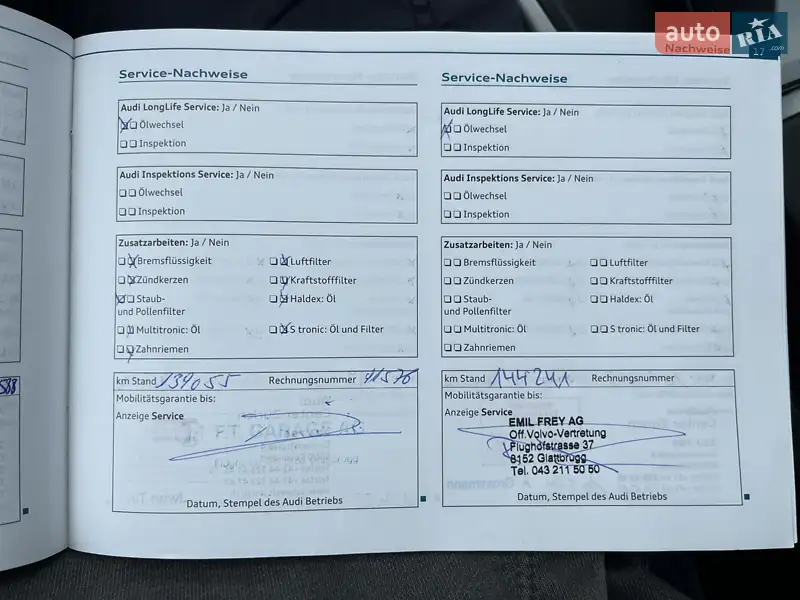 auto
RIA
.com
17
Nachweise
Service-Nachweise
Audi LongLife Service: Ja / Nein
Ölwechsel
Inspektion
Audi Inspektions Service: Ja / Nein
Ölwechsel
Inspektion
Zusatzarbeiten: Ja / Nein
Bremsflüssigkeit
Luftfilter
Zündkerzen
Kraftstofffilter
Staub-
und Pollenfilter
Haldex: Öl
Multitronic: Öl
S tronic: Öl und Filter
Zahnriemen
km Stand 139055 Rechnungsnummer 11576
Mobilitätsgarantie bis:
Anzeige Service
Datum, Stempel des Audi Betriebs
Service-Nachweise
Audi LongLife Service: Ja / Nein
Ölwechsel
Inspektion
Audi Inspektions Service: Ja / Nein
Ölwechsel
Inspektion
Zusatzarbeiten: Ja / Nein
Bremsflüssigkeit
Luftfilter
Zündkerzen
Kraftstofffilter
Staub-
und Pollenfilter
Haldex: Öl
Multitronic: Öl
S tronic: Öl und Filter
Zahnriemen
km Stand 144241 Rechnungsnummer
Mobilitätsgarantie bis:
Anzeige Service
EMIL FREY AG
Off.Volvo-Vertretung
Flughofstrasse 37
8152 Glattbrugg
Tel. 043 211 50 50
Datum, Stempel des Audi Betriebs